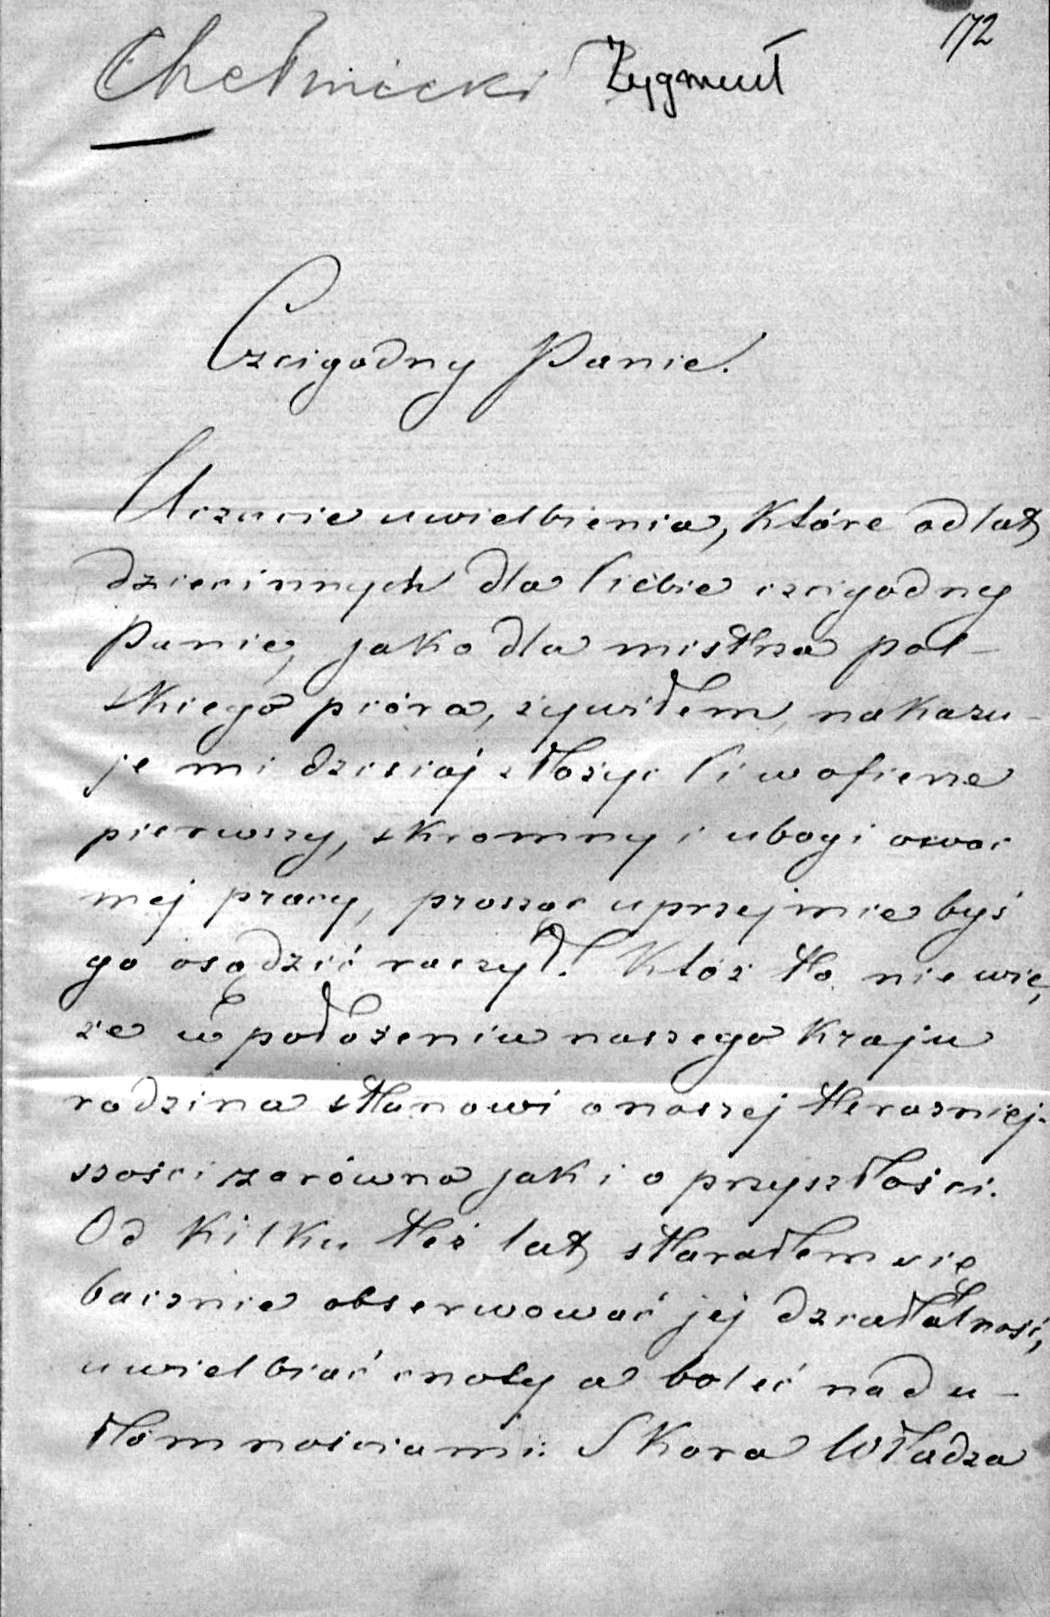 172
Chełmicki Zygmunt
Czcigodny Panie.
Uczucie uwielbienia, które od lat
dziecinnych dla Ciebie czcigodny
Panie, jako dla mistrza pol-
skiego pióra, żywiłem, nakazu-
je mi dzisiaj złożyć Ci w ofierze
pierwszy, skromny i ubogi owoc
mej pracy, prosząc uprzejmie byś
go osądzić raczył. Któż to nie wie,
że w położeniu naszego kraju
rodzina stanowi o naszej teraźniej-
szości zarówno jak i o przyszłości.
Od kilku też lat starałem się
bacznie obserwować jej działalność,
uwielbiać cnoty a boleć nad u-
łomnościami. Skoro Władza